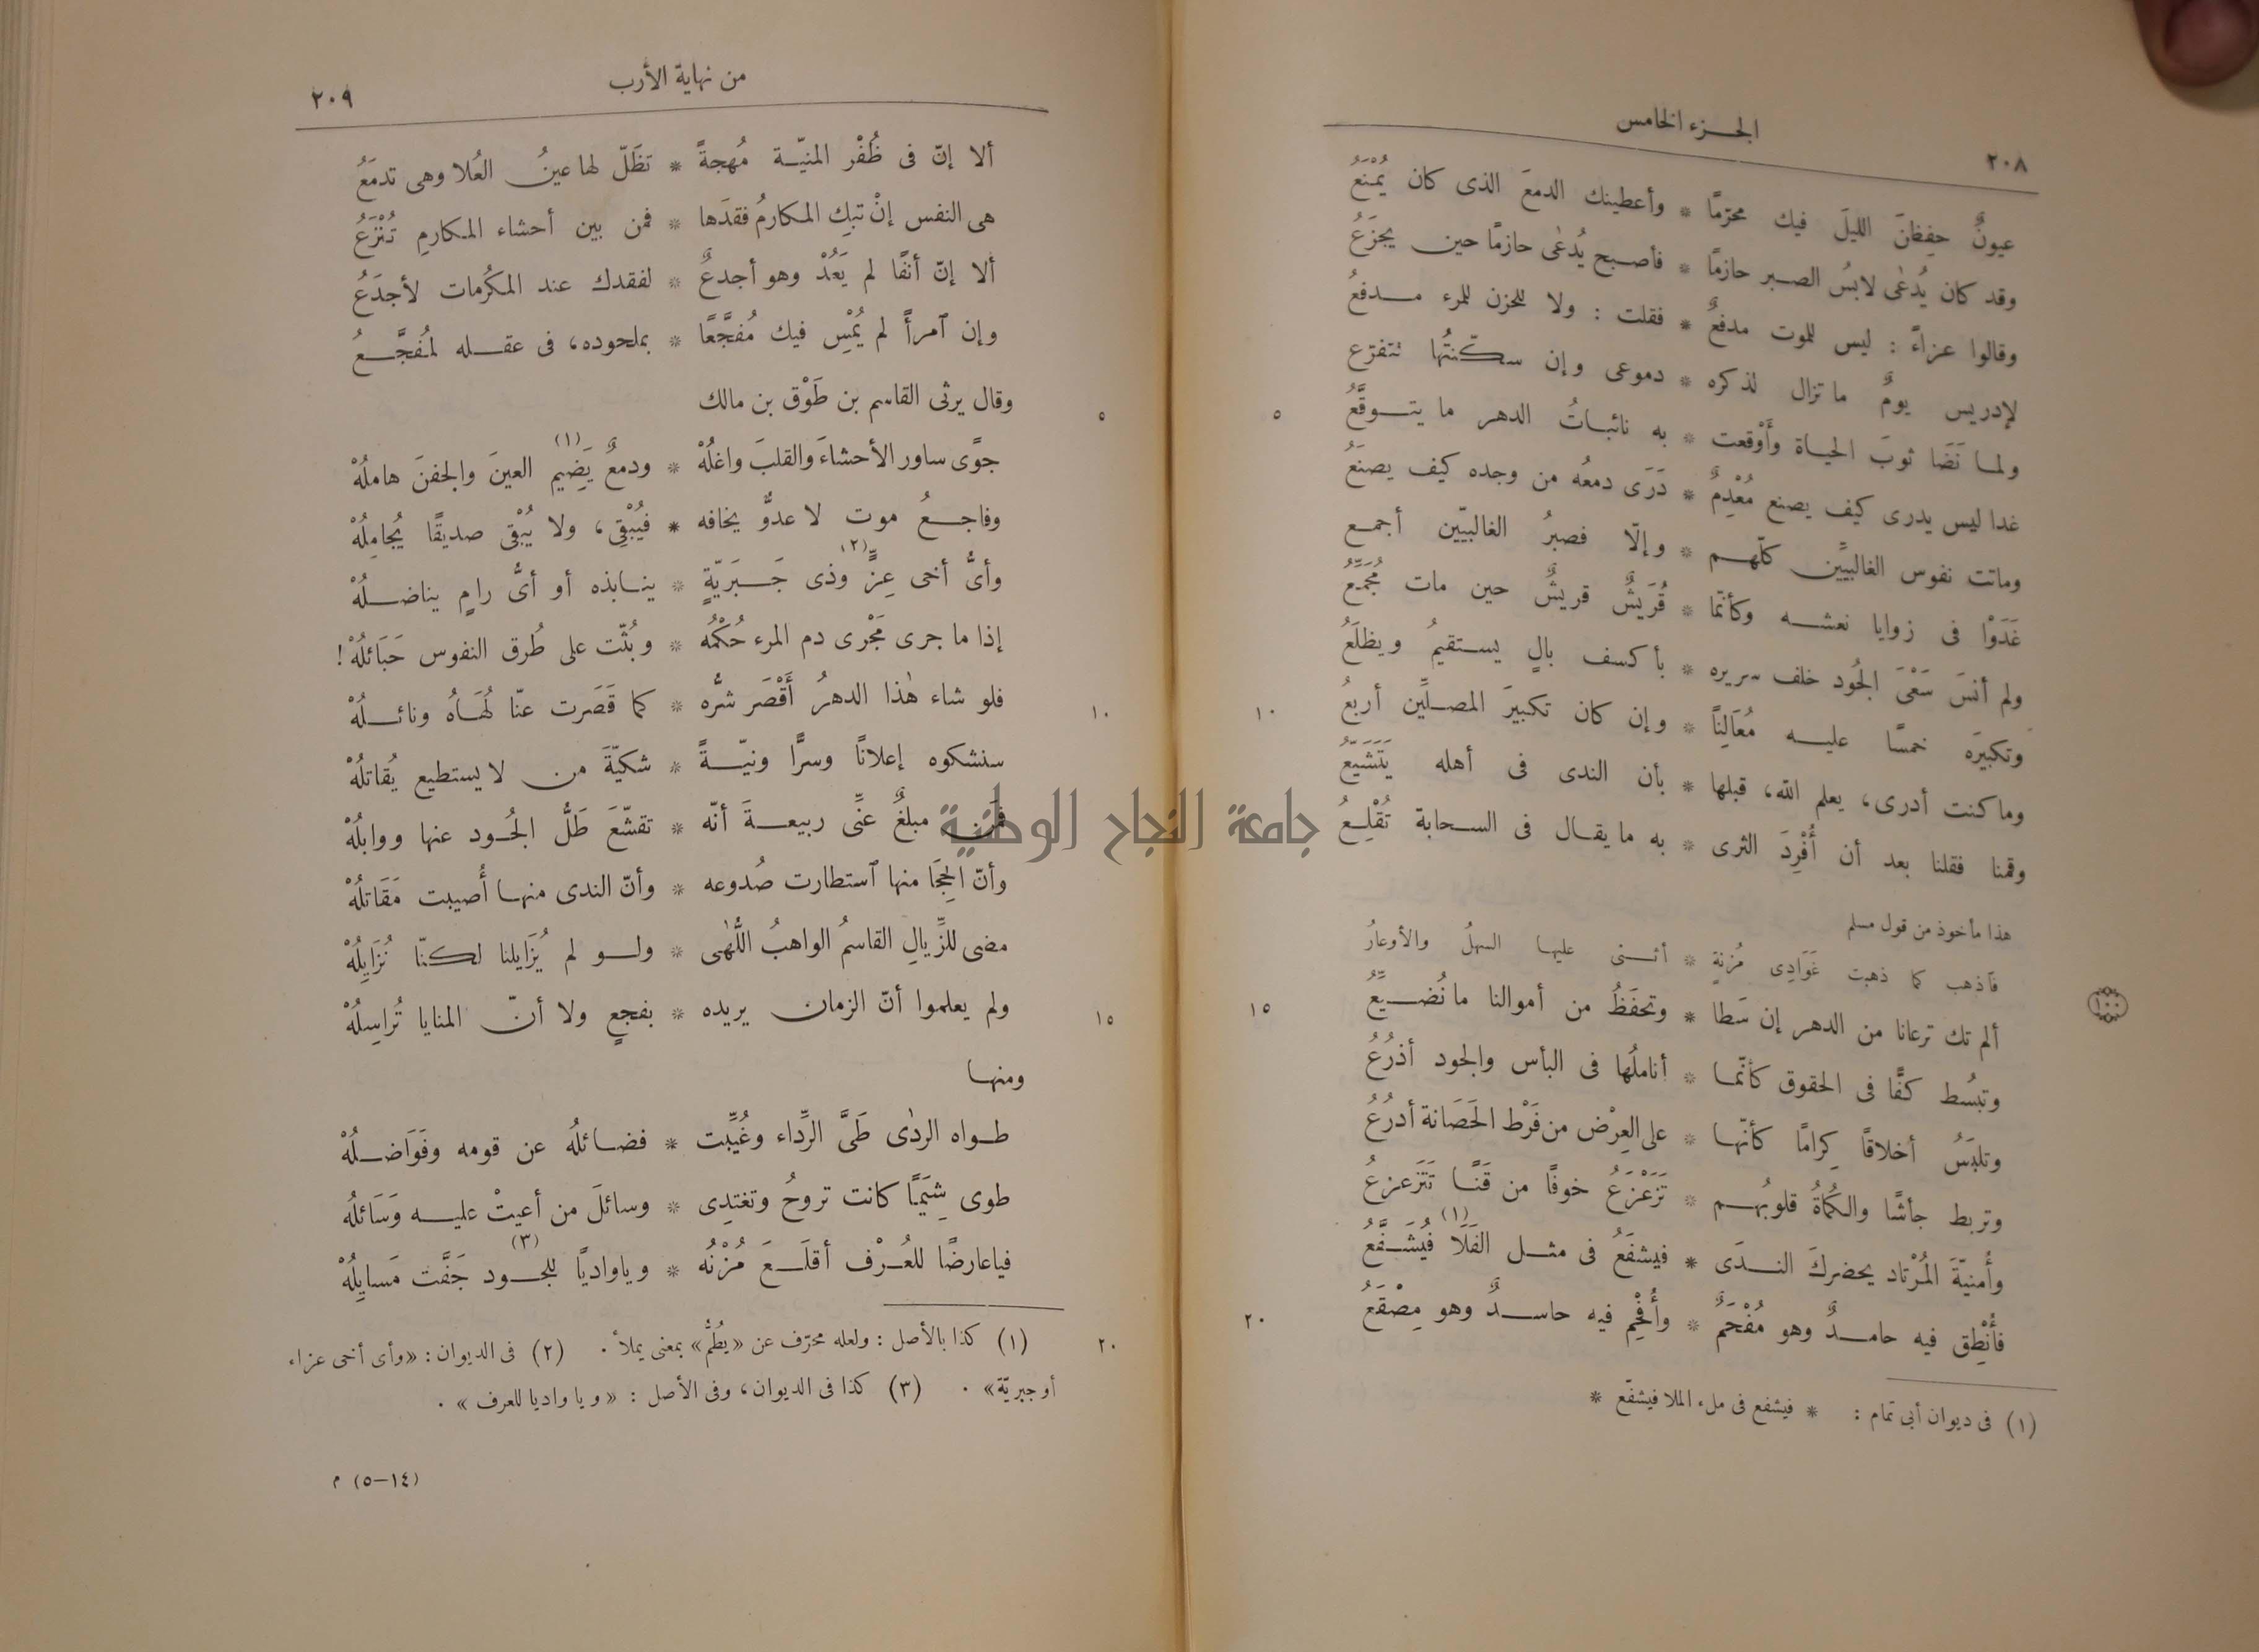 ٢٠٨
الجزء الخامس
عيونٌ حفِظنَ الليلَ فيك محرّمًا * وأعطينك الدمعَ الذى كان يُمْنَعُ
وقد كان يُدعَى لابسُ الصبر حازمًا * فأصبح يُدعَى حازمًا حين يجزَعُ
وقالوا عزاءً : ليس للموت مدفعٌ * فقلت : ولا للحزن للمرء مدفعُ
لإدريس يومٌ ما تزال لذكره * دموعى وإن سكّنتُها تتفرّع
٥
ولما نَضَا ثوبَ الحياة وأَوْقعت * به نائباتُ الدهر ما يتوقَّعُ
غدا ليس يدرى كيف يصنع مُعْدِمٌ * دَرَى دمعُه من وجده كيف يصنَعُ
وماتت نفوس الغالبيِّين كلّهم * وإلّا فصبرُ الغالبيّين أجمع
غَدَوْا فى زوايا نعشه وكأنّما * قُرَيشٌ قريشٌ حين مات مُجَمَّعُ
ولم أنسَ سَعْىَ الجُود خلف سريره * بأكسف بالٍ يستقيمُ ويظلَعُ
١٠
وتكبيرَه خمسًا عليه مُعَالِنًا * وإن كان تكبيرَ المصلِّين أربعُ
وما كنت أدرى، يعلم الله، قبلها * بأن الندى فى أهله يَتَشَيَّعُ
وقمنا فقلنا بعد أن أُفْرِدَ الثرى * به ما يقال فى السحابة تُقْلِعُ
هذا مأخوذ من قول مسلم
فآذهب كما ذهبت غَوَادِى مُزنةٍ * أثنى عليها السهلُ والأوعارُ
١٥
ألم تك ترعانا من الدهر إن سَطا * وتحفَظُ من أموالنا ما نُضيِّعُ
وتبسُط كفًّا فى الحقوق كأنّما * أناملُها فى البأس والجود أذرُعُ
وتلبَسُ أخلاقًا كِرامًا كأنّها * على العِرْض من فَرْط الحَصَانة أدرُعُ
وتربط جأشًا والكُماةُ قلوبُهم * تَزَعْزَعُ خوفًا من قَنًا تَتَزعزعُ
وأُمنيّةَ المُرْتاد يحضركَ الندَى * فيشفَعُ فى مثل الفَلَا (١) فُيشَفَّعُ
٢٠
فأُنْطِق فيه حامدٌ وهو مُفْحَمٌ * وأُفْحِم فيه حاسدٌ وهو مِصْقَعُ
(١) فى ديوان أبى تمام : * فيشفع فى ملء الملا فيشفّع *
١٠٠
من نهاية الأرب
٢٠٩
ألا إنّ فى ظُفْر المنيّة مُهجةً * تظَلّ لها عينُ العُلا وهى تدمَعُ
هى النفس إنْ تبكِ المكارمُ فقدَها * فمن بين أحشاء المكارمِ تُنْزَعُ
ألا إنّ أنفًا لم يَعُدْ وهو أجدعٌ * لفقدك عند المكرُمات لأجدَعُ
وإن آمرأً لم يُمْسِ فيك مُفجَّعًا * بملحوده، فى عقله لمُفجَّعُ
٥
وقال يرثى القاسم بن طَوْق بن مالك
جوًى ساور الأحشاءَ والقلبَ واغلُهْ * ودمعٌ يَضِيم (١) العينَ والجفنَ هاملُهْ
وفاجعُ موت لا عدوًّ يخافه * فيُبْقِى، ولا يُبْقى صديقًا يُجامِلُهْ
وأىُّ أخى عِزٍّ (٢) وذى جَبَريّةٍ * ينابذه أو أىُّ رامٍ يناضلُهْ
إذا ما جرى مَجْرى دم المرء حُكْمُه * وبُثّت على طُرق النفوس حَبَائلُهْ!
١٠
فلو شاء هٰذا الدهرُ أَقْصَر شرُّه * كما قَصَرت عنّا لُهَاهُ ونائلُهْ
سنشكوه إعلانًا وسرًّا ونيّةً * شكيّةَ من لا يستطيع يُقاتلُهْ
فمَن مبلغٌ عنِّى ربيعةَ أنّه * تقشّعَ طَلُّ الجُود عنها ووابلُهْ
وأنّ الحِجَا منها آستطارت صُدوعه * وأنّ الندى منها أُصيبت مَقَاتلُهْ
مضى للزِّيالِ القاسمُ الواهبُ اللُّهٰى * ولو لم يُزَايلنا لكنّا نُزَايِلُهْ
١٥
ولم يعلموا أنّ الزمان يريده * بفجعٍ ولا أنّ المنايا تُراسِلُهْ
ومنها
طواه الردٰى طَىَّ الرِّداء وغُيِّبت * فضائلُه عن قومه وفَوَاضلُهْ
طوى شِيَمًا كانت تروحُ وتغتدِى * وسائلَ من أعيتْ عليه وَسَائلُه
فياعارضًا للعُرْف أقلَعَ مُزْنُه * وياواديًا للجود (٣) جَفَّت مَسايِلُهْ
٢٠
(١) كذا بالأصل : ولعله محرّف عن «يطُمّ» بمعنى يملأ. (٢) فى الديوان : «وأى أخى عزاء
أو جبريّة» . (٣) كذا فى الديوان، وفى الأصل : «ويا واديا للعرف» .
(١٤-٥) م
جامعة النجاح الوطنية